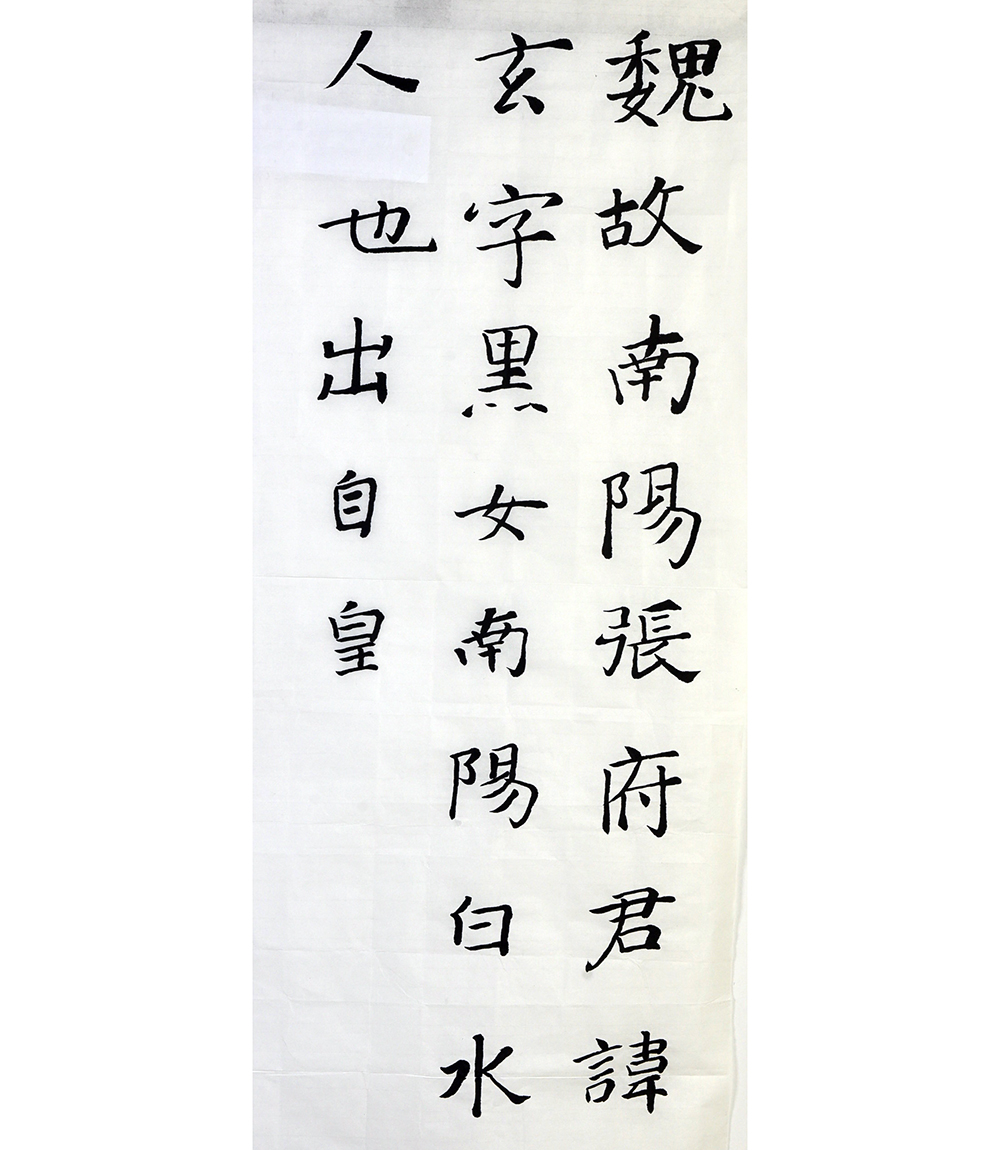 魏故南陽張府君諱
玄字黑女南陽白水
人也出自皇